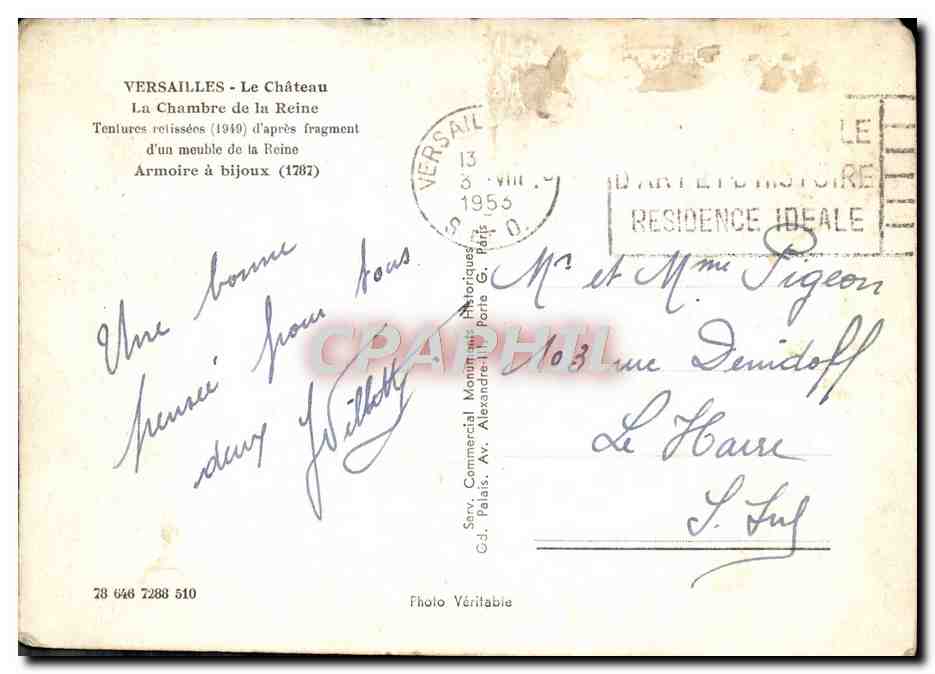 VERSAILLES - Le Château
La Chambre de la Reine
Tentures retissées (1949) d'après fragment
d'un meuble de la Reine
Armoire à bijoux (1787)
VERSAIL
13
3 VIII
1953
S. O.
LE
D'ART ET D'HISTOIRE
RESIDENCE IDEALE
Une bonne
pensée pour tous
deux
Mr et Mme Pigeon
103 rue Demidoff
Le Havre
S. Inf
Serv. Commercial Monuments Historiques
Gd. Palais. Av. Alexandre-III, Porte G. Paris
CPAPHIL
78 646 7288 510
Photo Véritable